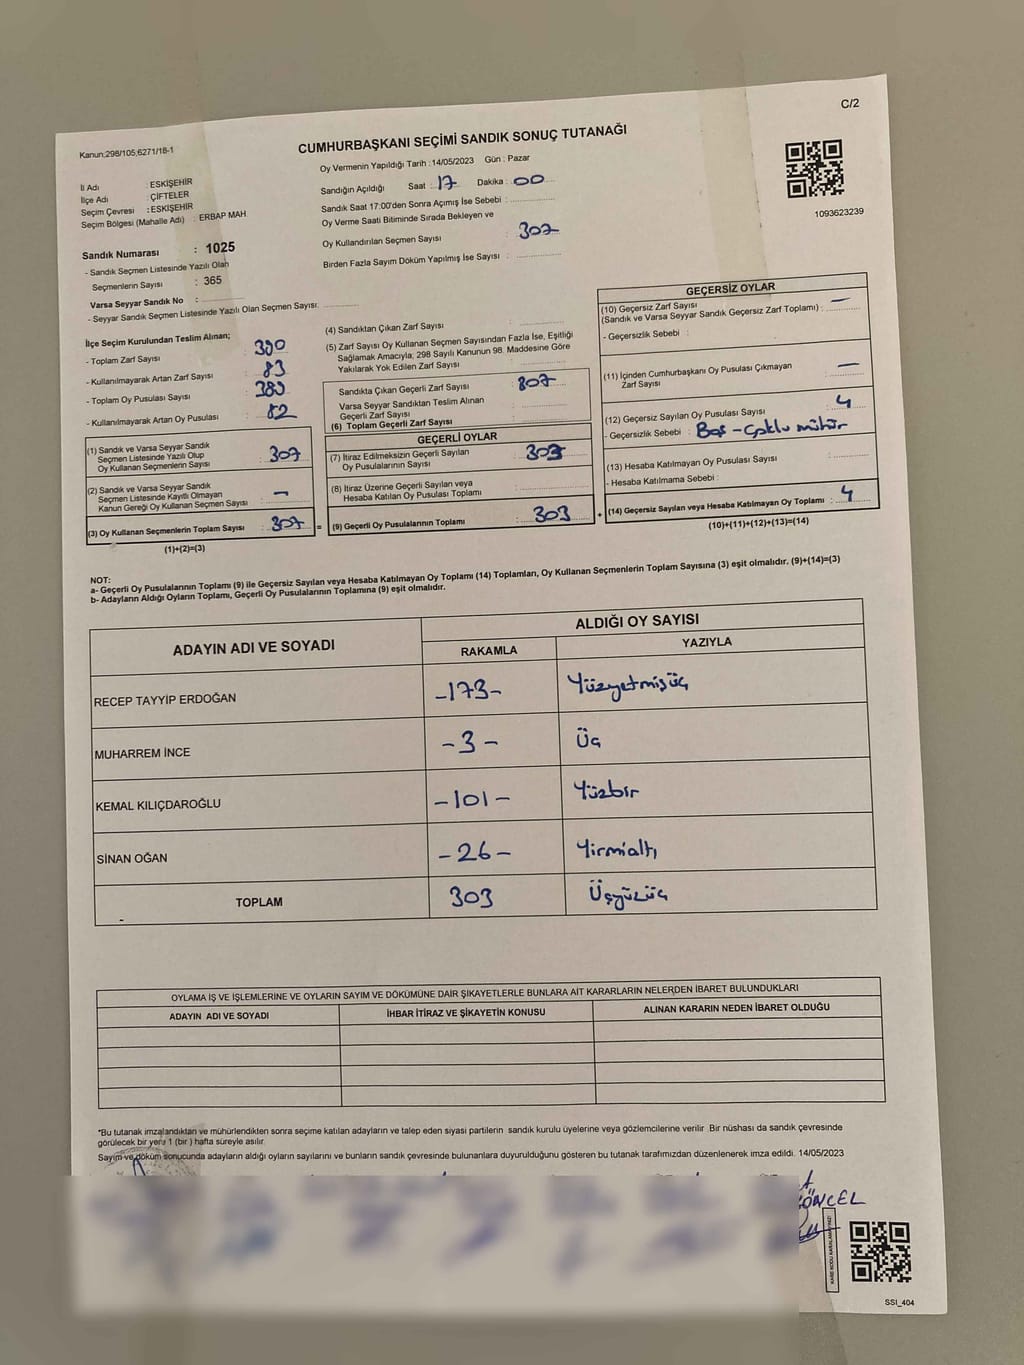 C/2
Kanun;298/105;6271/18-1
CUMHURBAŞKANI SEÇİMİ SANDIK SONUÇ TUTANAĞI
Oy Vermenin Yapıldığı Tarih :14/05/2023 Gün : Pazar
Sandığın Açıldığı Saat : 17 Dakika : 00
Sandık Saat 17:00'den Sonra Açımış İse Sebebi :
Oy Verme Saati Bitiminde Sırada Bekleyen ve
Oy Kullandırılan Seçmen Sayısı : 307
Birden Fazla Sayım Döküm Yapılmış İse Sayısı :
1093623239
İl Adı : ESKİŞEHİR
İlçe Adı : ÇİFTELER
Seçim Çevresi : ESKİŞEHİR
Seçim Bölgesi (Mahalle Adı) : ERBAP MAH.
Sandık Numarası : 1025
- Sandık Seçmen Listesinde Yazılı Olan
Seçmenlerin Sayısı : 365
Varsa Seyyar Sandık No :
- Seyyar Sandık Seçmen Listesinde Yazılı Olan Seçmen Sayısı:
İlçe Seçim Kurulundan Teslim Alınan;
- Toplam Zarf Sayısı : 390
- Kullanılmayarak Artan Zarf Sayısı : 83
- Toplam Oy Pusulası Sayısı : 389
- Kullanılmayarak Artan Oy Pusulası : 82
(1) Sandık ve Varsa Seyyar Sandık
Seçmen Listesinde Yazılı Olup
Oy Kullanan Seçmenlerin Sayısı : 307
(2) Sandık ve Varsa Seyyar Sandık
Seçmen Listesinde Kayıtlı Olmayan
Kanun Gereği Oy Kullanan Seçmen Sayısı : —
(3) Oy Kullanan Seçmenlerin Toplam Sayısı : 307 =
(1)+(2)=(3)
(4) Sandıktan Çıkan Zarf Sayısı :
(5) Zarf Sayısı Oy Kullanan Seçmen Sayısından Fazla İse, Eşitliği
Sağlamak Amacıyla; 298 Sayılı Kanunun 98. Maddesine Göre
Yakılarak Yok Edilen Zarf Sayısı :
Sandıkta Çıkan Geçerli Zarf Sayısı : 307
Varsa Seyyar Sandıktan Teslim Alınan
Geçerli Zarf Sayısı :
(6) Toplam Geçerli Zarf Sayısı :
GEÇERLİ OYLAR
(7) İtiraz Edilmeksizin Geçerli Sayılan
Oy Pusulalarının Sayısı : 303
(8) İtiraz Üzerine Geçerli Sayılan veya
Hesaba Katılan Oy Pusulası Toplamı :
(9) Geçerli Oy Pusulalarının Toplamı : 303 +
GEÇERSİZ OYLAR
(10) Geçersiz Zarf Sayısı
(Sandık ve Varsa Seyyar Sandık Geçersiz Zarf Toplamı) : —
- Geçersizlik Sebebi :
(11) İçinden Cumhurbaşkanı Oy Pusulası Çıkmayan
Zarf Sayısı : —
(12) Geçersiz Sayılan Oy Pusulası Sayısı : 4
- Geçersizlik Sebebi : Boş - Çoklu mühür
(13) Hesaba Katılmayan Oy Pusulası Sayısı :
- Hesaba Katılmama Sebebi :
(14) Geçersiz Sayılan veya Hesaba Katılmayan Oy Toplamı : 4
(10)+(11)+(12)+(13)=(14)
NOT:
a- Geçerli Oy Pusulalarının Toplamı (9) ile Geçersiz Sayılan veya Hesaba Katılmayan Oy Toplamı (14) Toplamları, Oy Kullanan Seçmenlerin Toplam Sayısına (3) eşit olmalıdır. (9)+(14)=(3)
b- Adayların Aldığı Oyların Toplamı, Geçerli Oy Pusulalarının Toplamına (9) eşit olmalıdır.
ADAYIN ADI VE SOYADI
ALDIĞI OY SAYISI
RAKAMLA YAZIYLA
RECEP TAYYİP ERDOĞAN -173- Yüzyetmişüç
MUHARREM İNCE -3- Üç
KEMAL KILIÇDAROĞLU -101- Yüzbir
SİNAN OĞAN -26- Yirmialtı
TOPLAM 303 Üçyüzüç
OYLAMA İŞ VE İŞLEMLERİNE VE OYLARIN SAYIM VE DÖKÜMÜNE DAİR ŞİKAYETLERLE BUNLARA AİT KARARLARIN NELERDEN İBARET BULUNDUKLARI
ADAYIN ADI VE SOYADI İHBAR İTİRAZ VE ŞİKAYETİN KONUSU ALINAN KARARIN NEDEN İBARET OLDUĞU
*Bu tutanak imzalandıktan ve mühürlendikten sonra seçime katılan adayların ve talep eden siyasi partilerin sandık kurulu üyelerine veya gözlemcilerine verilir .Bir nüshası da sandık çevresinde
görülecek bir yere 1 (bir ) hafta süreyle asılır.
Sayım ve döküm sonucunda adayların aldığı oyların sayılarını ve bunların sandık çevresinde bulunanlara duyurulduğunu gösteren bu tutanak tarafımızdan düzenlenerek imza edildi. 14/05/2023
GÖNCEL
KARE KODU KARALAMAYINIZ!
SSI_404